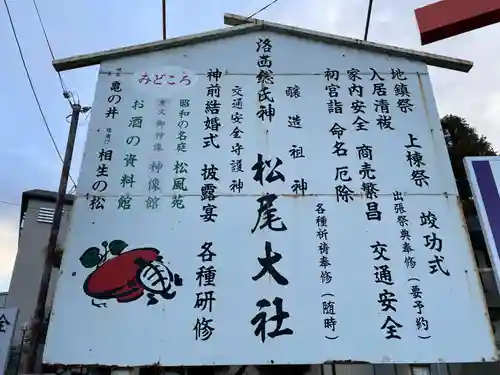 地鎮祭 上棟祭 竣功式
入居清祓 出張祭典奉修(要予約)
家内安全 商売繁昌 交通安全
初宮詣 命名 厄除 各種祈祷奉修(随時)
醸造祖神
洛西総氏神 松尾大社
交通安全守護神
神前結婚式 披露宴 各種研修
みどころ
昭和の名庭 松風苑
重文 御神像 神像館
お酒の資料館
霊泉 亀の井 縁結び 相生の松